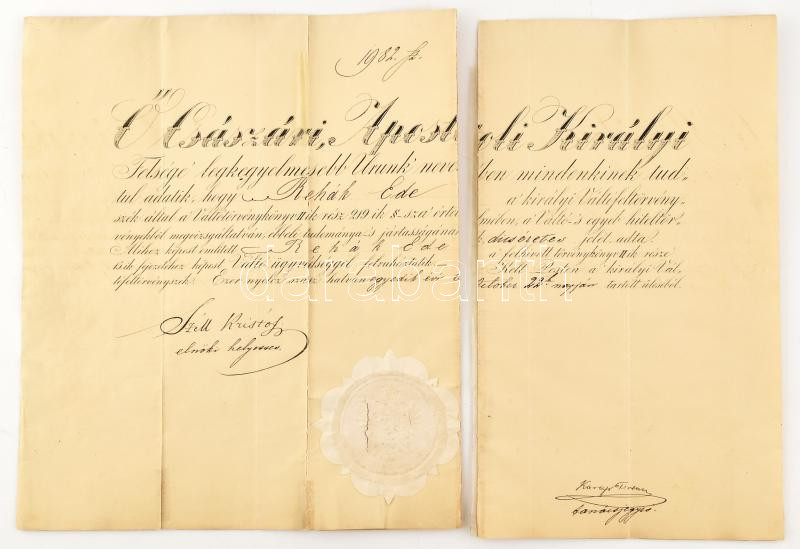 1982. sz.
Ő Császári, Apostoli Királyi
Felségé legkegyelmesebb Urunk neveben mindenkinek tud=
tul adatik, hogy Rehák Ede a királyi Váltófeltörvény=
szék által a Váltótörvénykönyv II ik rész 219 ik §-sza értelmében, a Váltó-'s egyéb hiteltör=
vényekből megvizsgáltatván, ebbeli tudománya 's jártasságának dicséretes jelét adta.
Mihez képest említett Rehák Ede a felhívott törvénykönyv II ik része
ik fejezetéhez képest Váltó ügyvédséggel felruháztatik. Kelt Pesten a királyi Vál=
tófeltörvényszék Ezer nyolcz száz hatvan egyedik évi October 22k napján tartott ülésében.
Széll Kristóf
elnöki helyettes.
tanácsjegyző.
darabanth